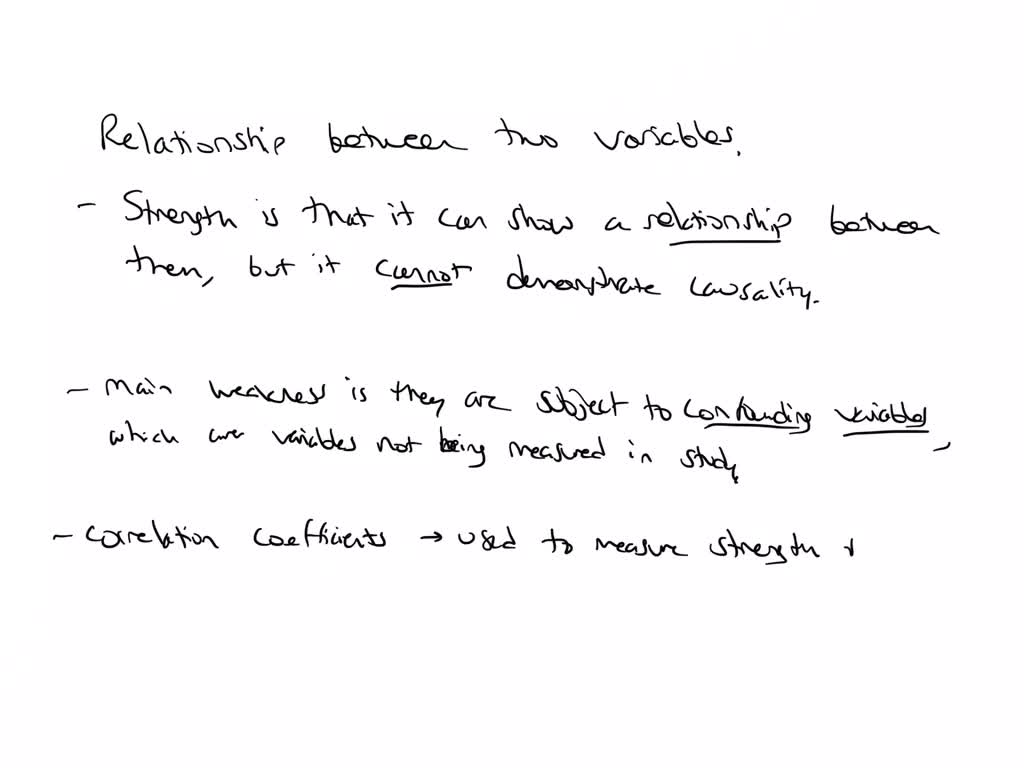 Relationship between two variables.
- Strength is that it can show a relationship between
them, but it cannot demonstrate causality.
- Main weakness is they are subject to confounding variables,
which are variables not being measured in study
- Correlation coefficients → used to measure strength +